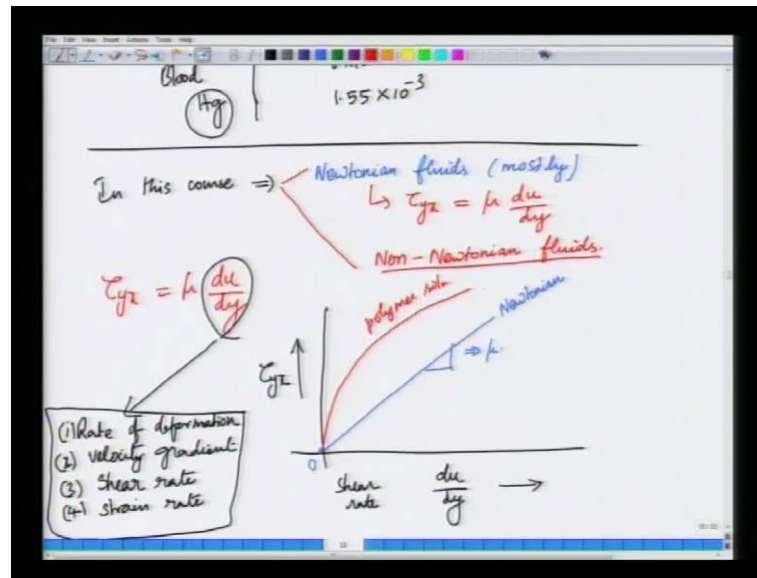 File Edit View Insert Actions Tools Help
Blood
Hg
1.55 × 10⁻³
In this course ⇒ Newtonian fluids (mostly)
↳ τyx = μ du/dy
Non-Newtonian fluids.
τyx = μ du/dy
polymer soln
Newtonian
⇒ μ.
τyx
(1) Rate of deformation
(2) velocity gradient
(3) shear rate
(4) strain rate
0
shear rate du/dy →